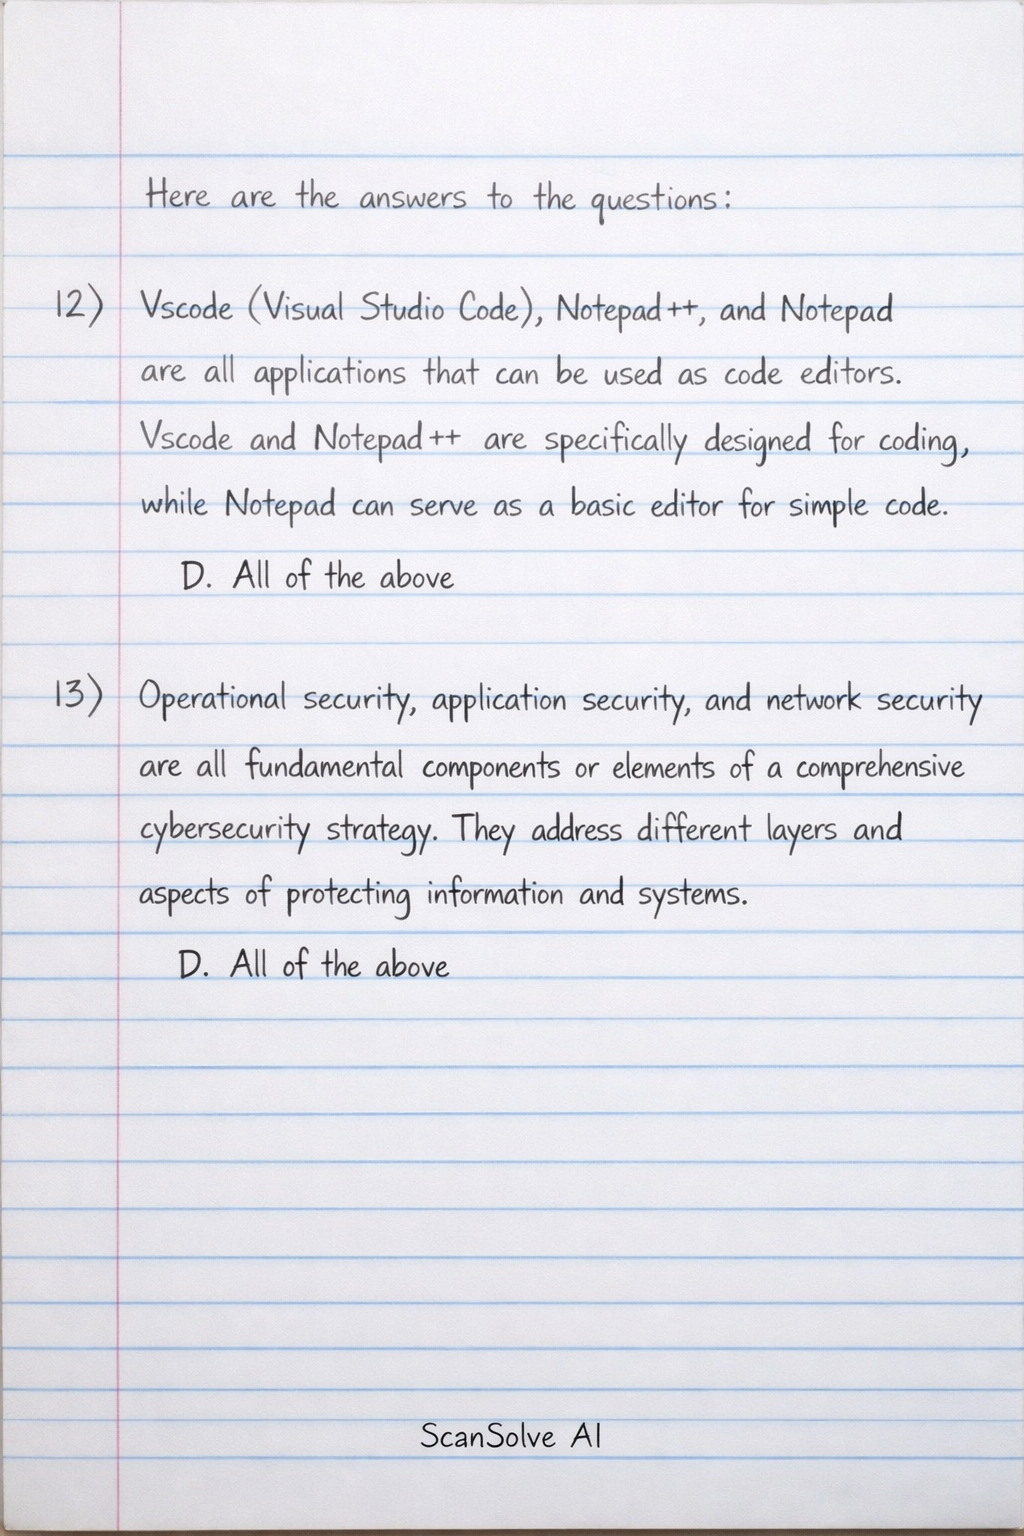 Here are the answers to the questions:
12) Vscode (Visual Studio Code), Notepad++, and Notepad
are all applications that can be used as code editors.
Vscode and Notepad++ are specifically designed for coding,
while Notepad can serve as a basic editor for simple code.
D. All of the above
13) Operational security, application security, and network security
are all fundamental components or elements of a comprehensive
cybersecurity strategy. They address different layers and
aspects of protecting information and systems.
D. All of the above
ScanSolve AI